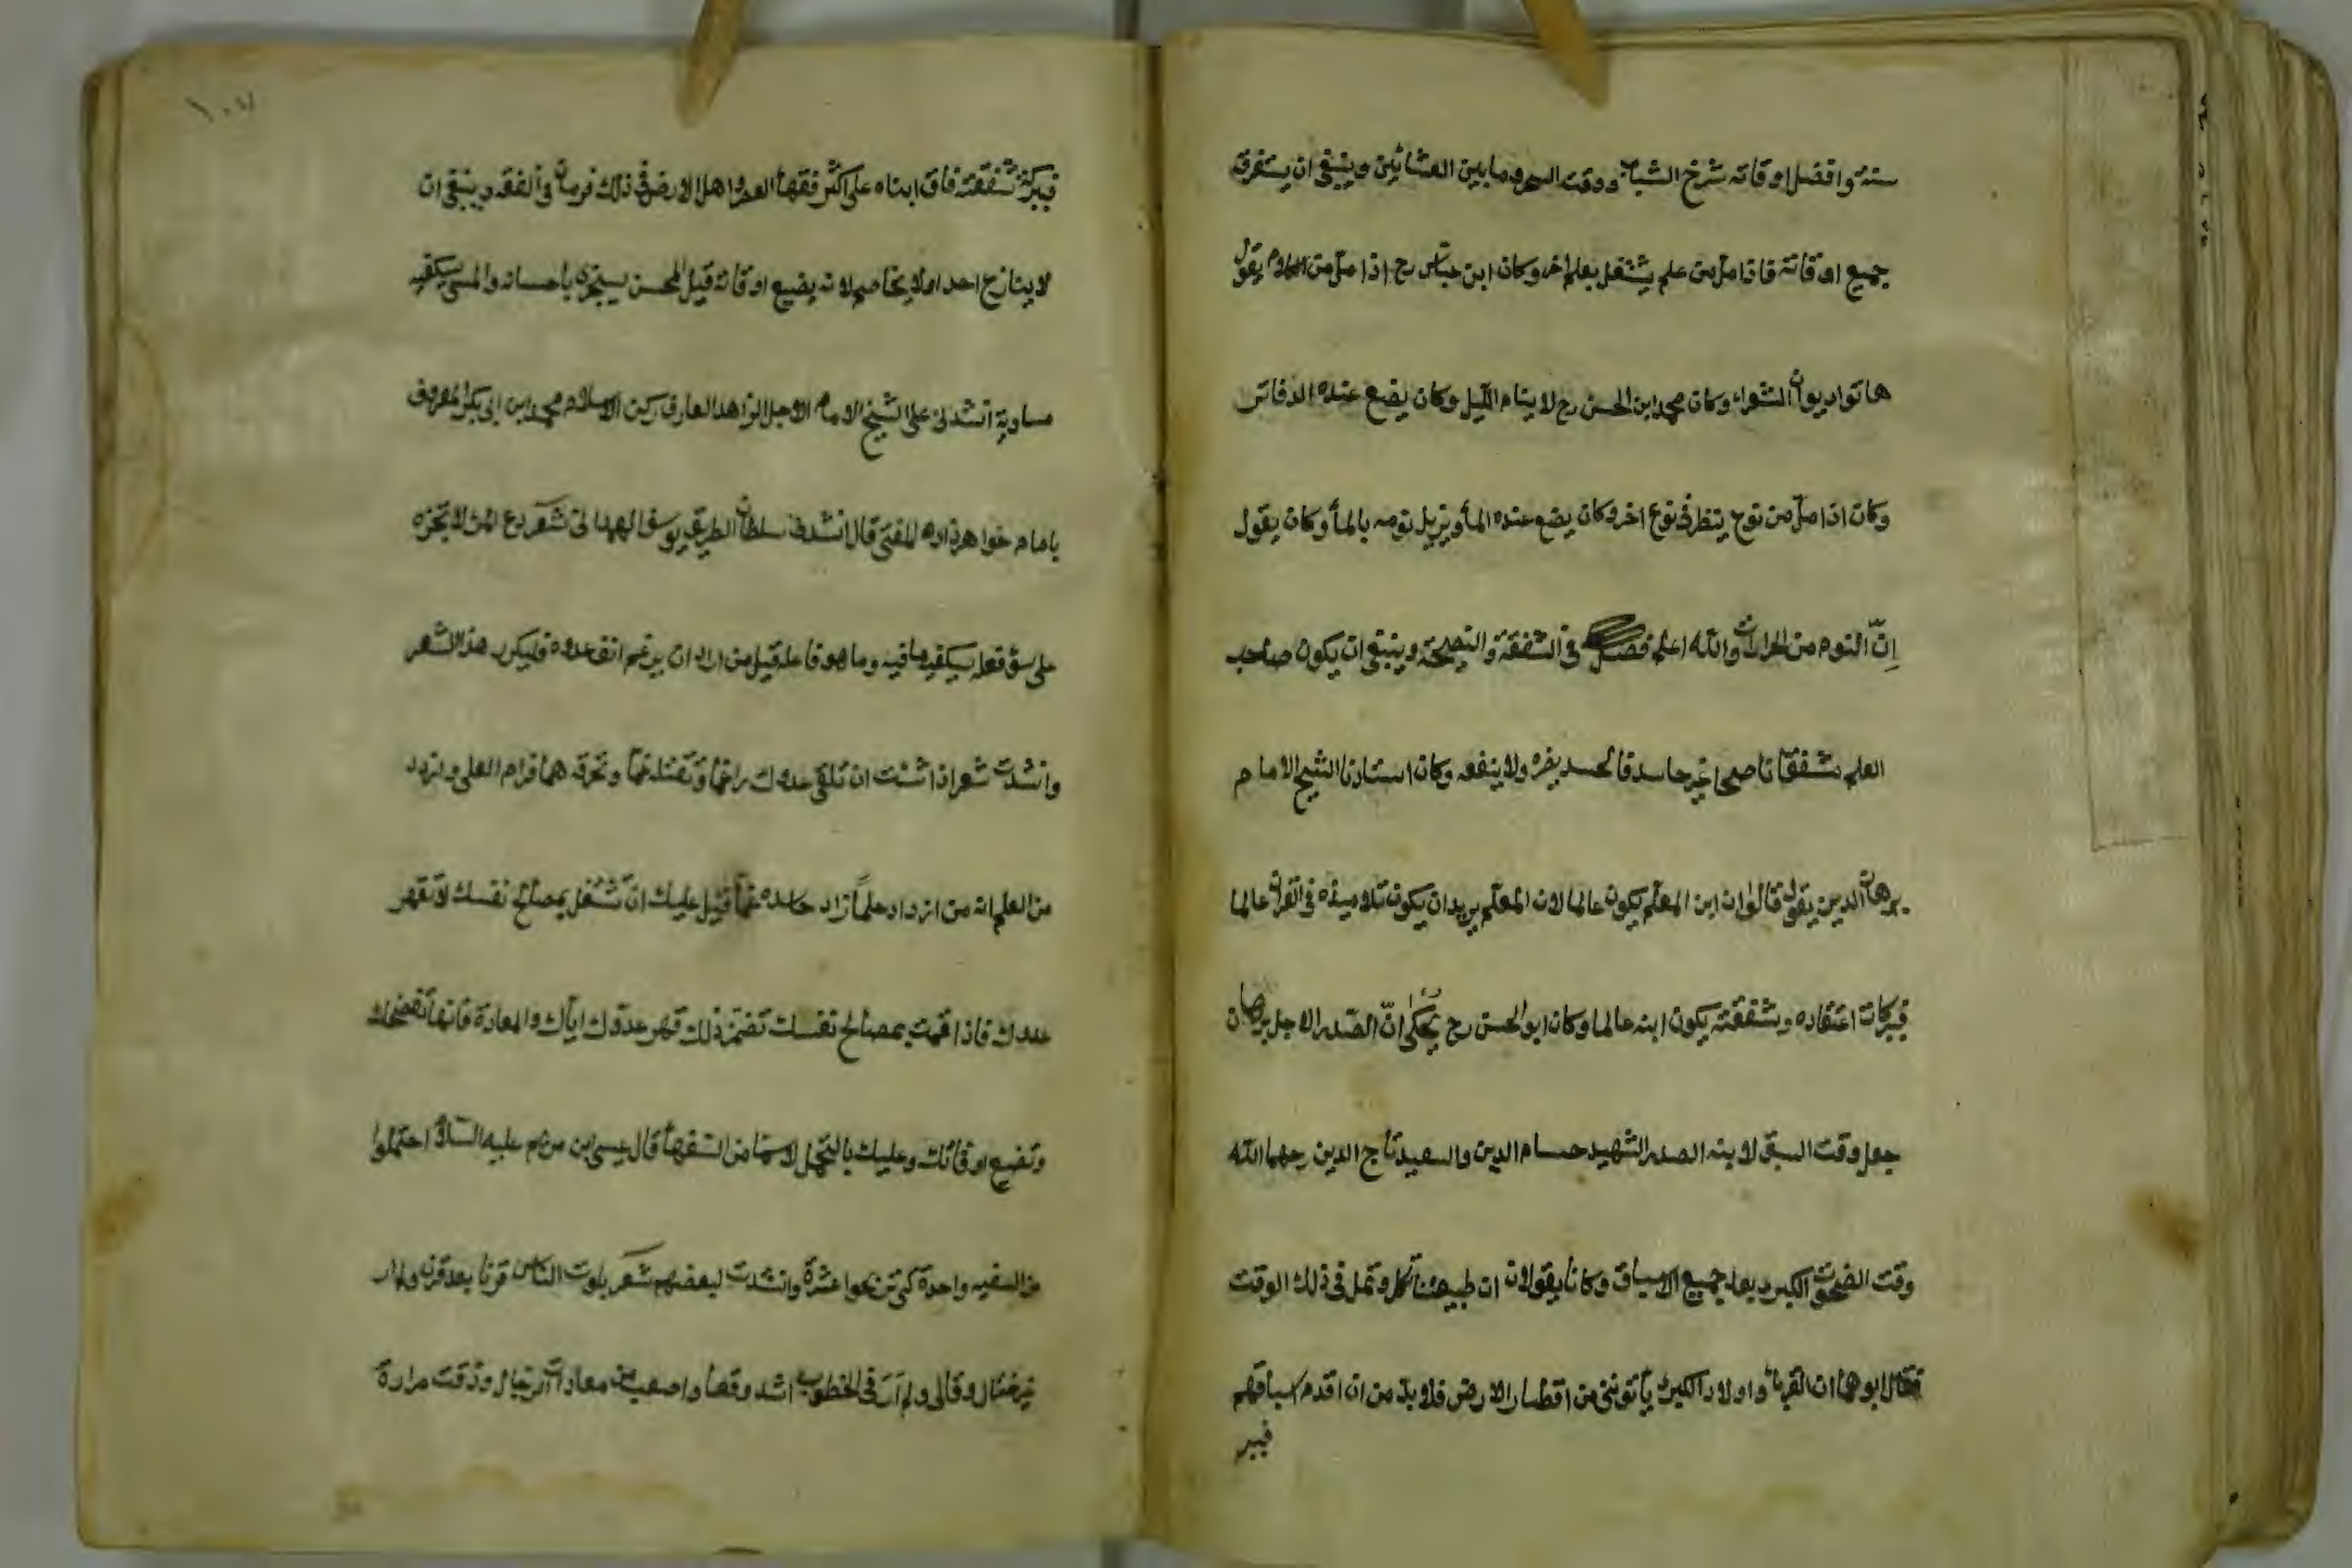 سنة وافضل اوقاته شرخ الشباب ووقت السحر وما بين العشائين وينبغى ان يستغرق
جميع اوقاته فاذا مل من علم يشتغل بعلم اخر وكان ابن عباس رح اذا مل من الكلام يقول
هاتوا ديوان الشعراء وكان محمد ابن الحسن رح لا ينام الليل وكان يضع عنده الدفاتر
وكان اذا مل من نوع ينظر فى نوع اخر وكان يضع عنده الماء ويزيل نومه بالماء وكان يقول
ان النوم من الحرارت والله اعلم فصل فى الشفقة والنصيحة وينبغى ان يكون صاحب
العلم مشفقا ناصحا غير حاسد فالحسد يضره ولا ينفعه وكان استادنا الشيخ الامام
برهان الدين يقول قالوا ان ابن المعلم يكون عالما لان المعلم يريد ان يكون تلاميذه فى القران عالما
فبركات اعتقاده وشفقته يكون ابنه عالما وكان ابو الحسن رح يحكى ان الصدر الاجل برهان
جعل وقت السبق لابنه الصدر الشهيد حسام الدين والسعيد تاج الدين رحهما الله
وقت الضحوة الكبرى بعد جميع الاسباق وكانا يقولان ان طبيعتنا تكل وتمل فى ذلك الوقت
فقال ابوهما ان الغرباء واولاد الكبراء يأتوننى من اقطار الارض فلا بد من ان اقدم اسباقهم
فببر
فببركة شفقته فاق ابناه على اكثر فقهاء العصر واهل الارض فى ذلك فرمان فى الفقه وينبغى ان
لا ينازع احدا ولا يخاصم لانه يضيع اوقاته قيل المحسن سيجزى باحسانه والمسى سيكفيه
مساويه انشدنى على الشيخ الامام الاجل الزاهد العارف ركن الاسلام محمد ابن ابى بكر المعروف
بامام خواهرزاده المفتى قال انشدنى سلطان الطريقه يوسف الهمدانى شعر دع المرء لا تجزه
على سوء فعله سيكفيه ما فيه وما هو فاعله قيل من اراد ان يرغم انف عدوه فليكرر هذا الشعر
وانشدت شعر اذا شئت ان تلقى عدوك راغما وتقتله غما وتحرقه هما فرام العلى وازدد
من العلم انه من ازداد علما زاد حاسده غما قيل عليك ان تشتغل بمصالح نفسك لا بقهر
عدوك فاذا اقمت بمصالح نفسك تضمن ذلك قهر عدوك اياك والمعادة فانها تفضحك
وتضيع اوقاتك وعليك بالتحمل لا سيما من السفهاء قال عيسى ابن مريم عليه السلام احتملوا
من السفيه واحدة كى تربحوا عشرة وانشدت لبعضهم شعر بلوت الناس قرنا بعد قرن ولم ار
غير ختال وقالى ولم ار فى الخطوب اشد وقعا واصعب من معادات الرجال وذقت مرارة